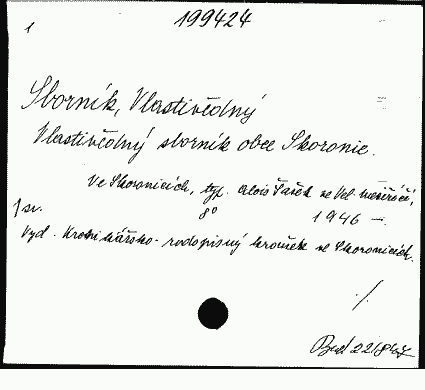 199424
1
Sborník, Vlastivědný
Vlastivědný sborník obce Skoronic.
Ve Skoronicích, typ. Alois Šašek ve Vel. Meziříčí,
8° 1946 –.
1 sv.
Vyd. Kronikářsko-rodopisný kroužek ve Skoronicích.
./.